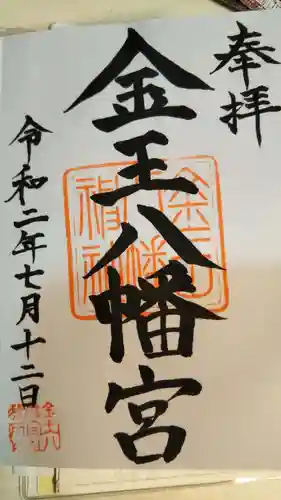 奉拝
金王八幡宮
令和二年七月十二日